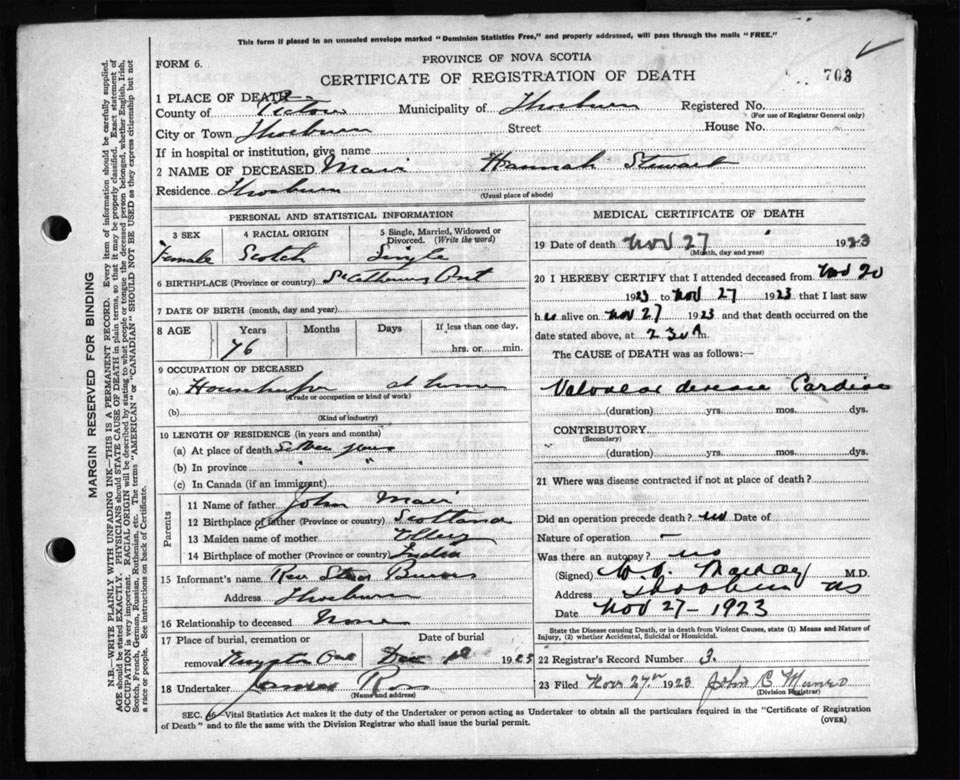 This form if placed in an unsealed envelope marked "Dominion Statistics Free," and properly addressed, will pass through the mails "FREE."
FORM 6.
PROVINCE OF NOVA SCOTIA
CERTIFICATE OF REGISTRATION OF DEATH
703
1 PLACE OF DEATH
County of Pictou Municipality of Thorburn Registered No.
(For use of Registrar General only)
City or Town Thorburn Street House No.
If in hospital or institution, give name
2 NAME OF DECEASED Mair Hannah Stewart
Residence Thorburn
(Usual place of abode)
PERSONAL AND STATISTICAL INFORMATION
3 SEX 4 RACIAL ORIGIN 5 Single, Married, Widowed or Divorced. (Write the word)
Female Scotch Single
6 BIRTHPLACE (Province or country) St Catherines Ont
7 DATE OF BIRTH (month, day and year)
8 AGE Years Months Days If less than one day,
76 hrs. or min.
9 OCCUPATION OF DECEASED
(a) Housekeeper at home
(Trade or occupation or kind of work)
(b)
(Kind of industry)
10 LENGTH OF RESIDENCE (in years and months)
(a) At place of death years
(b) In province " "
(c) In Canada (if an immigrant)
Parents
11 Name of father John Mair
12 Birthplace of father (Province or country) Scotland
13 Maiden name of mother
14 Birthplace of mother (Province or country) India
15 Informant's name Rev
Address Thorburn
16 Relationship to deceased None
17 Place of burial, cremation or Date of burial
removal Kingston Ont Dec 1923
18 Undertaker James Ross
(Name and address)
MEDICAL CERTIFICATE OF DEATH
19 Date of death Nov 27 1923
(Month, day and year)
20 I HEREBY CERTIFY that I attended deceased from Nov 20
1923 to Nov 27 1923 that I last saw
her alive on Nov 27 1923 and that death occurred on
date stated above, at 2 30 A m.
The CAUSE of DEATH was as follows:—
Valvular disease Cardiac
(duration) yrs. mos. dys.
CONTRIBUTORY
(Secondary)
(duration) yrs. mos. dys.
21 Where was disease contracted if not at place of death?
Did an operation precede death? no Date of
Nature of operation –
Was there an autopsy? no
(Signed) M.D.
Address Thorburn NS
Date Nov 27 - 1923
State the Disease causing Death, or in death from Violent Causes, state (1) Means and Nature of Injury, (2) whether Accidental, Suicidal or Homicidal.
22 Registrar's Record Number 3.
23 Filed Nov 27th 1923 John C Munro
(Division Registrar)
SEC. 16—Vital Statistics Act makes it the duty of the Undertaker or person acting as Undertaker to obtain all the particulars required in the "Certificate of Registration
of Death" and to file the same with the Division Registrar who shall issue the burial permit.
(OVER)
MARGIN RESERVED FOR BINDING
N.B.—WRITE PLAINLY WITH UNFADING INK—THIS IS A PERMANENT RECORD. Every item of information should be carefully supplied.
AGE should be stated EXACTLY. PHYSICIANS should STATE CAUSE OF DEATH in plain terms, so that it may be properly classified. Exact statement of
OCCUPATION is very important. RACIAL ORIGIN will be described by stating to what people or tongue the deceased person belonged, whether English, Irish,
Scotch, French, German, Russian, Ruthenian, etc. The terms "AMERICAN" or "CANADIAN" SHOULD NOT BE USED as they express citizenship but not
a race or people. See instructions on back of Certificate.